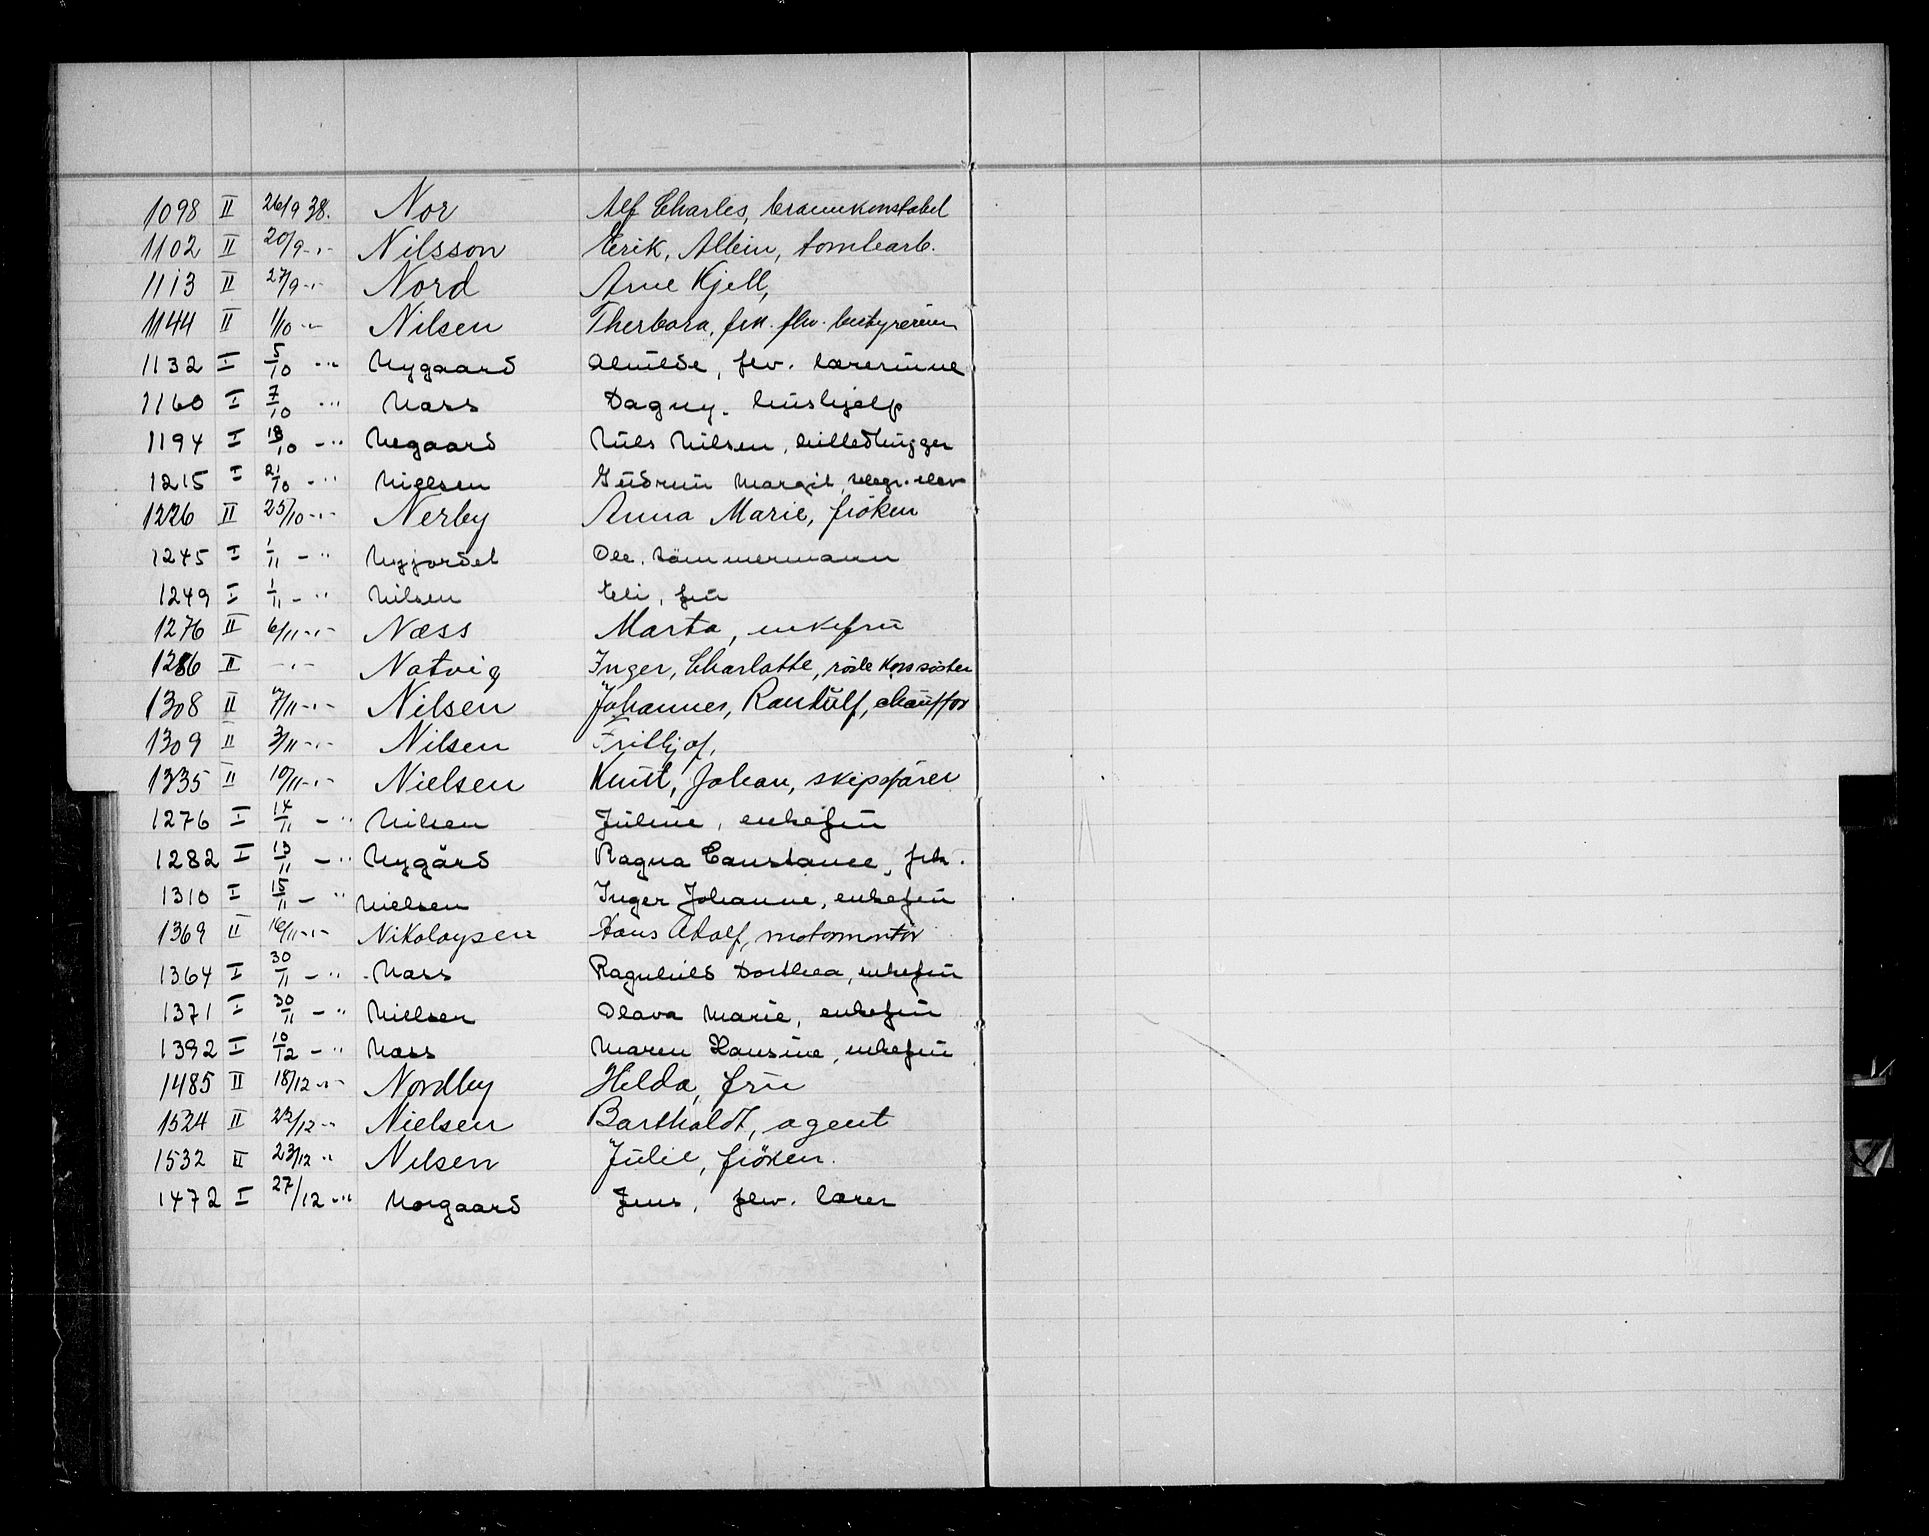 1098 II 26/9 38. Nor Alf Charles, brannkonstabel
1102 II 20/9 -"- Nilsson Erik, Albin, tomtearb.
1113 II 27/9 -"- Nord Arne Kjell,
1144 II 1/10 -"- Nilsen Therbora, frk. fhv. bestyrerinne
1132 I 5/10 -"- Nygaard Alvilde, fhv. lærerinne
1160 I 7/10 -"- Næss Dagny. hushjelp
1194 I 18/10 -"- Negaard Nils Nilsen, billedhugger
1215 I 21/10 -"- Nielsen Gudrun Margit, telegr. elev
1226 II 25/10 -"- Nerby Anna Marie, frøken
1245 I 1/11 -"- Nyjordet Ole, tømmermann
1249 I 1/11 -"- Nilsen Eli, fru
1276 II 6/11 -"- Næss Marta, enkefru
1286 II -"- Natvig Inger, Charlotte, røde kors søster
1308 II 7/11 -"- Nilsen Johannes, Rantulf, chauffør
1309 II 3/11 -"- Nilsen Frithjof,
1335 II 10/11 -"- Nielsen Knut, Johan, skipsfører
1276 I 14/11 -"- Nilsen Juline, enkefru
1282 I 13/11 -"- Nygård Ragna Constance, frk.
1310 I 15/11 -"- Nielsen Inger Johanne, enkefru
1369 II 16/11 -"- Nikolaysen Hans Adolf, motormontør
1364 I 30/11 -"- Næss Ragnhild Dorthea, enkefru
1371 I 30/11 -"- Nielsen Olava Marie, enkefru
1392 I 10/12 -"- Næss Maren Hansine, enkefru
1485 II 18/12 -"- Nordby Helda, fru
1524 II 22/12 -"- Nielsen Bartholdt, agent
1532 II 23/12 " Nilsen Julie, frøken.
1472 I 27/12 -"- Norgaard Jens, fhv. lærer